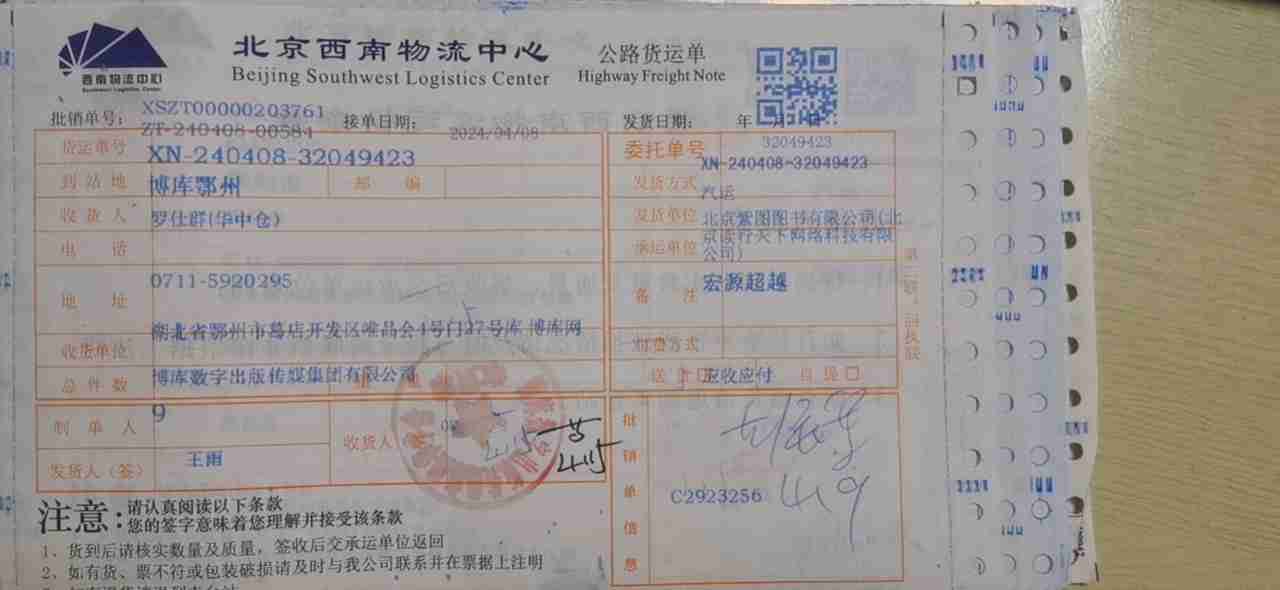 西南物流中心
Southwest Logistics Center
北京西南物流中心
Beijing Southwest Logistics Center
公路货运单
Highway Freight Note
批销单号: XSZT00000203761
ZT-240408-00584
接单日期: 2024/04/08
发货日期: 年 月
货运单号 XN-240408-32049423
委托单号 32049423
XN-240408-32049423
到站地 博库鄂州 邮 编
发货方式 汽运
收货人 罗仕群(华中仓)
发货单位 北京紫图图书有限公司(北
京读行天下网络科技有限
公司)
电 话
承运单位
地 址 0711-5920295
备 注 宏源超越
湖北省鄂州市葛店开发区唯品会4号门27号库 博库网
收货单位
付费方式
总件数 博库数字出版传媒集团有限公司
送货 应收应付 自提
制单人 9
收货人(签)
4.15
批销单信息
C2923256
419
发货人(签) 王雨
注意: 请认真阅读以下条款
您的签字意味着您理解并接受该条款
1、货到后请核实数量及质量，签收后交承运单位返回
2、如有货、票不符或包装破损请及时与我公司联系并在票据上注明